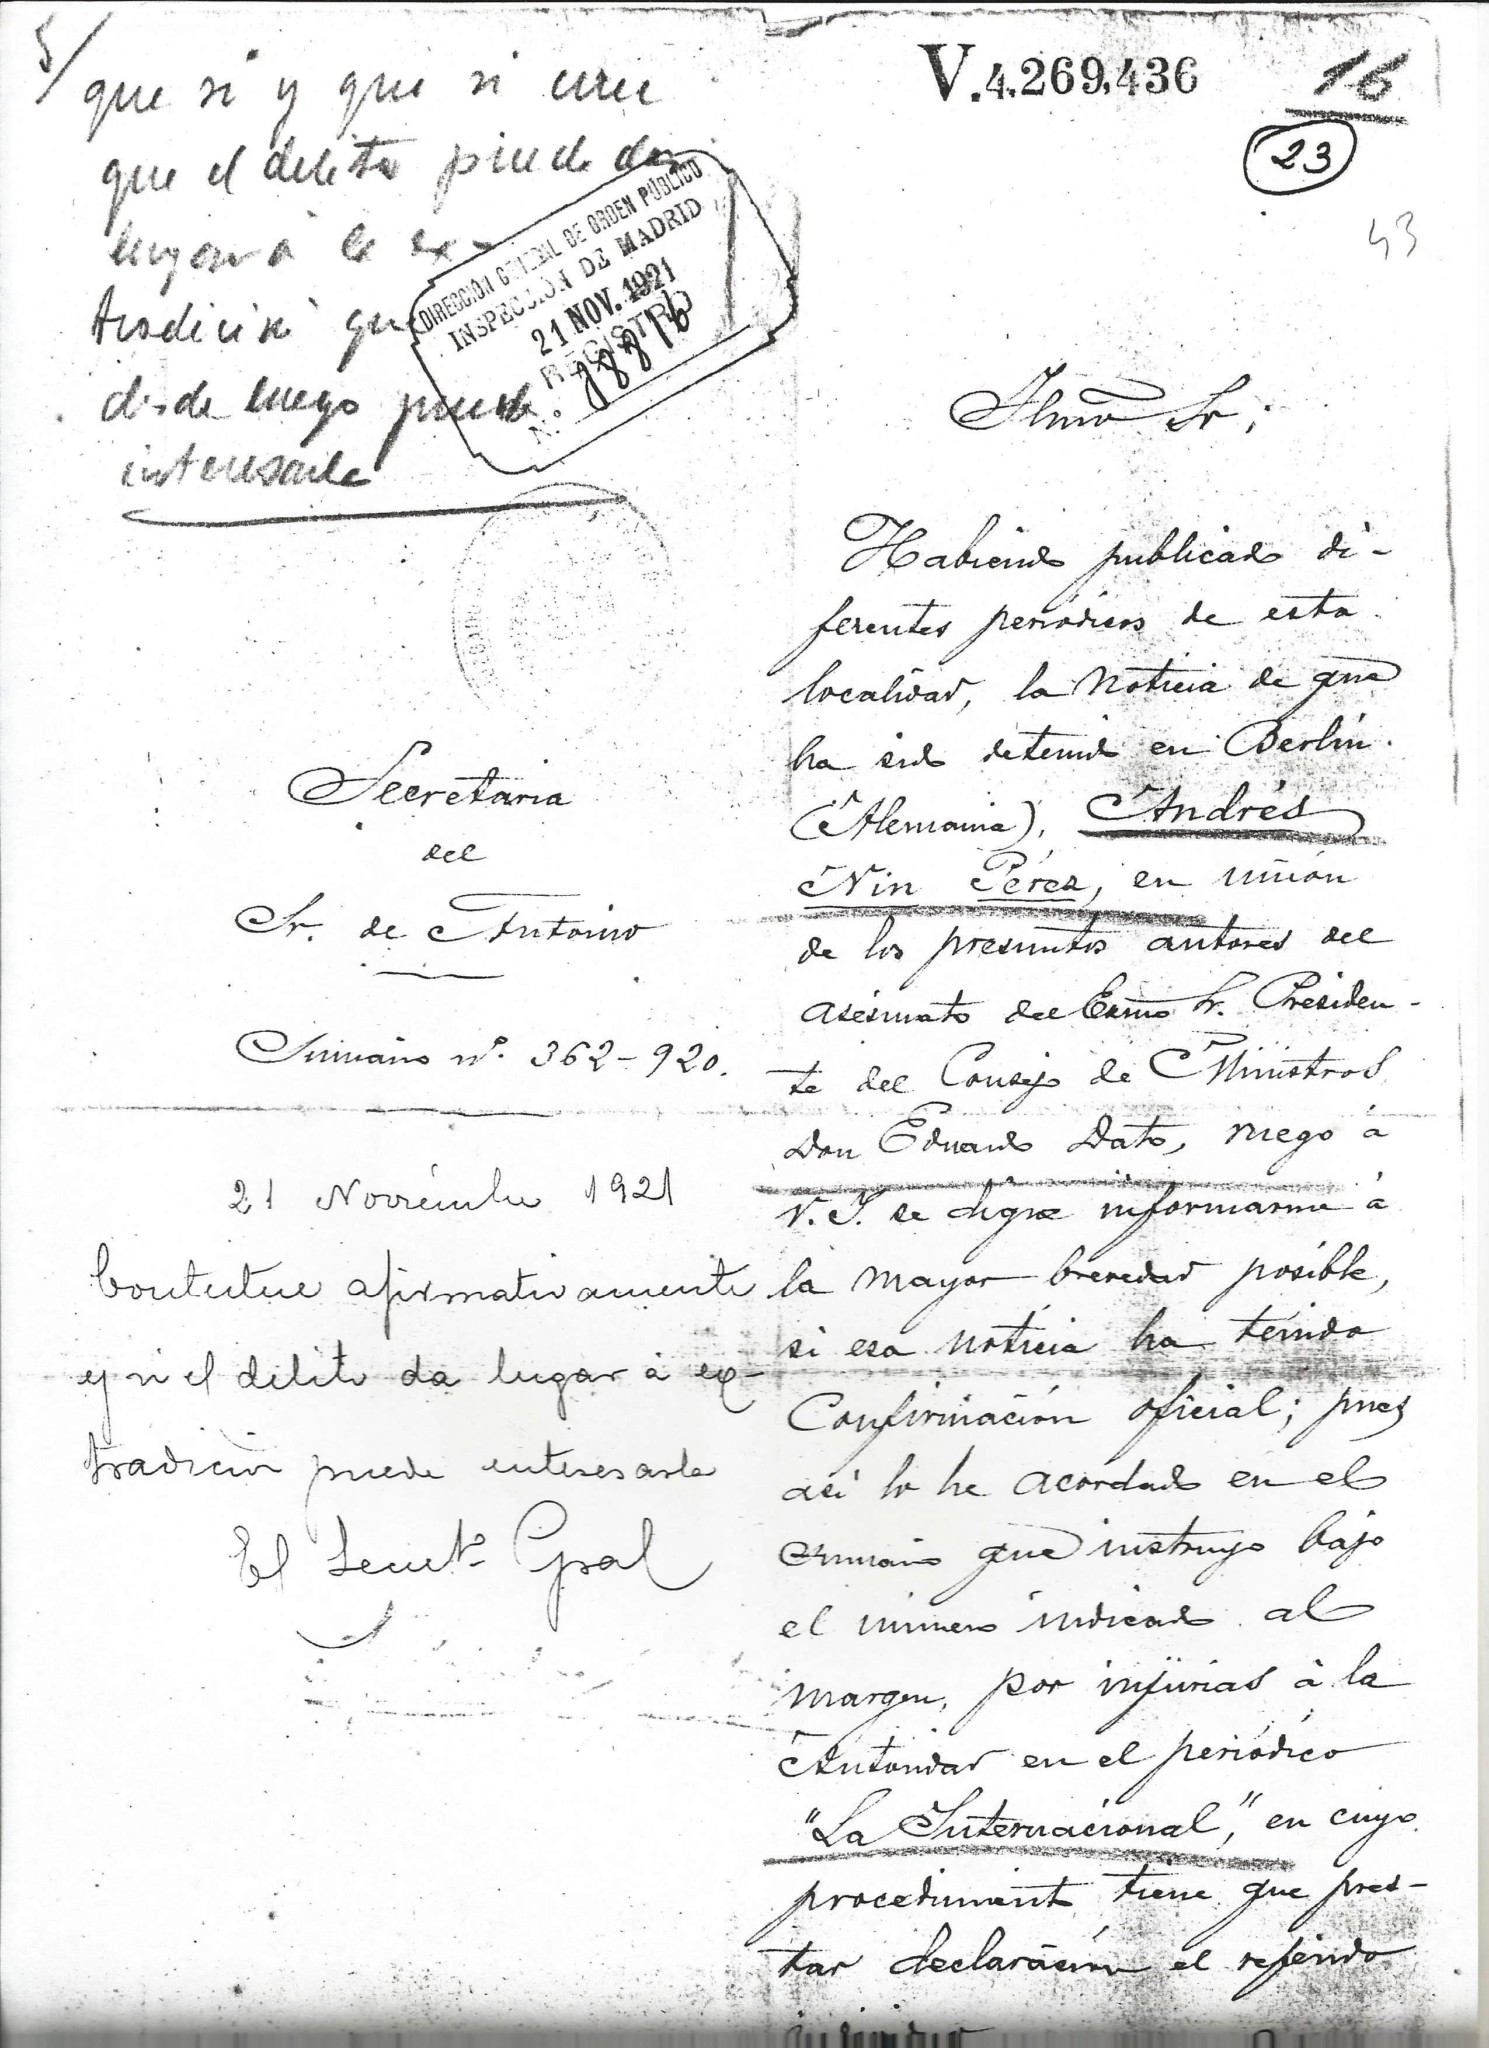 V.4.269,436
16
23
43
5/
que si y que si cree
que el delito puede dar
lugar á la ex-
tradición que
desde luego puede
interesarla
DIRECCIÓN GENERAL DE ORDEN PÚBLICO
INSPECCIÓN DE MADRID
21 NOV. 1921
REGISTRO
N.º
Secretaria
del
Sr. de Antonio
Sumario nº. 362-920.
21 Noviembre 1921
Conteste afirmativamente
y si el delito da lugar á ex-
tradición puede interesarla
El Secretº Gral
Ilmo Sr;
Habiendo publicado di-
ferentes periódicos de esta
localidad, la noticia de que
ha sido detenido en Berlín
(Alemania), Andrés
Nin Pérez, en unión
de los presuntos autores del
asesinato del Exmo Sr. Presiden-
te del Consejo de Ministros
Don Eduardo Dato, ruego á
V.I. se digne informarme á
la mayor brevedad posible,
si esa noticia ha tenido
Confirmación oficial; pues
así lo he acordado en el
sumario que instruyo bajo
el número indicado al
margen, por injurias á la
Autoridad en el periódico
"La Internacional", en cuyo
procedimiento tiene que pres-
tar declaración el referido